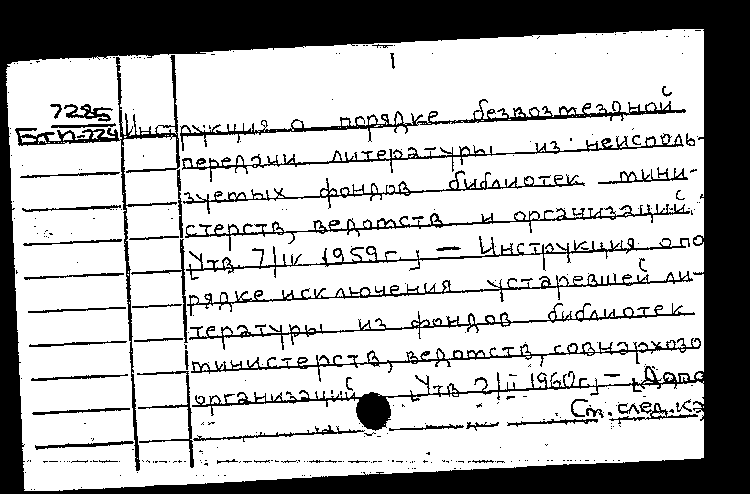 I
7285
Бтп-224
Инструкция о порядке безвозмездной
передачи литературы из неисполь-
зуемых фондов библиотек мини-
стерств, ведомств и организаций.
[Утв. 7/IV 1959г.] — Инструкция о по
рядке исключения устаревшей ли-
тературы из фондов библиотек
министерств, ведомств, совнархозо
организаций [Утв 2/II 1960г.] — [Допо
См. след. ка